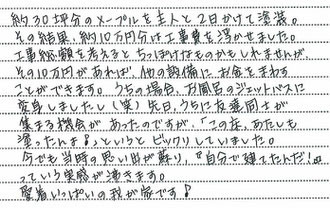 約30坪分のメープルを主人と2日かけて塗装。
その結果、約10万円分は工事費を浮かせました。
工事総額を考えると、ちっぽけなものかもしれませんが、
その10万円があれば、他の設備にお金をまわす
ことができます。うちの場合、お風呂のジェットバスに
変身しましたし(笑)先日、うちに友達同士が
集まる機会があったのですが、「この床、あたしも
塗ったんよ♪」というとビックリしていました。
今でも当時の思い出が蘇り、『自分で建てたんだ!』
っていう実感が湧きます。
愛着いっぱいの我が家です♪